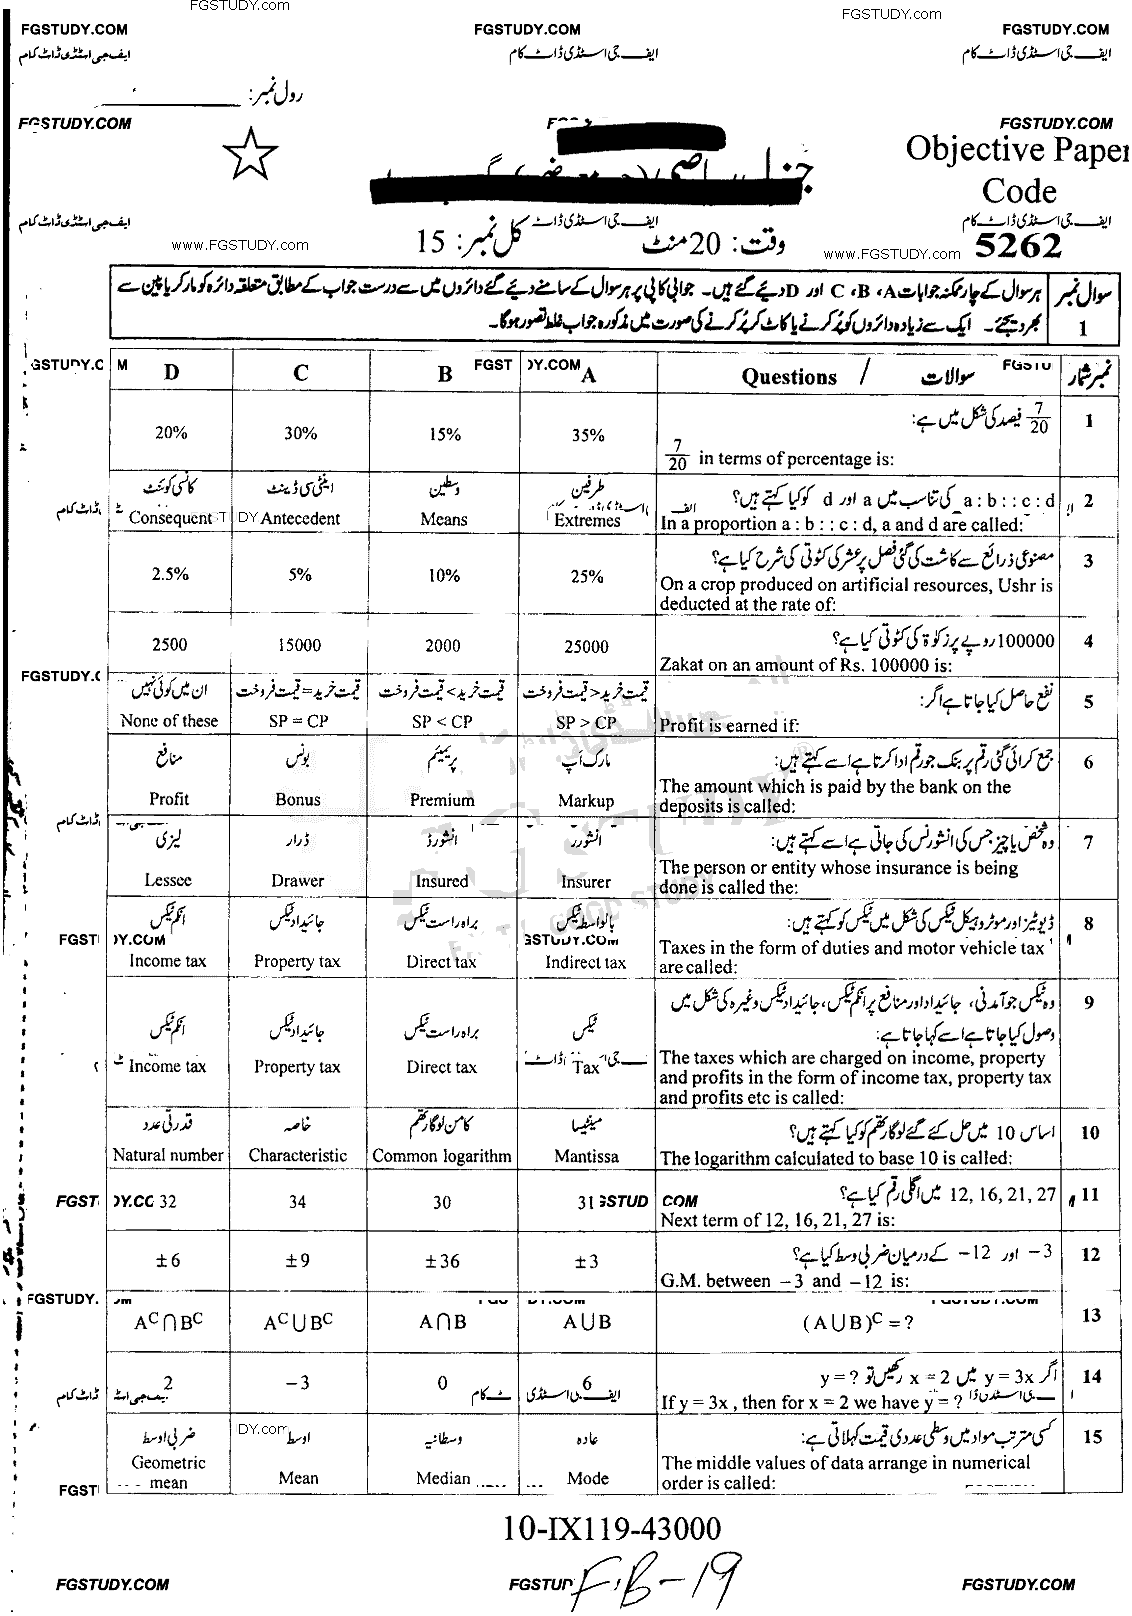 FGSTUDY.com
FGSTUDY.com
FGSTUDY.COM FGSTUDY.COM FGSTUDY.COM
ایف جی اسٹڈی ڈاٹ کام ایف جی اسٹڈی ڈاٹ کام ایف جی اسٹڈی ڈاٹ کام
رول نمبر:
FGSTUDY.COM FGSTUDY.COM
Objective Paper
Code
5262
ایف جی اسٹڈی ڈاٹ کام ایف جی اسٹڈی ڈاٹ کام ایف جی اسٹڈی ڈاٹ کام
www.FGSTUDY.com www.FGSTUDY.com
وقت: 20 منٹ کل نمبر: 15
سوال نمبر 1
ہر سوال کے چار ممکنہ جوابات A، B، C اور D دیئے گئے ہیں۔ جوابی کاپی پر ہر سوال کے سامنے دیئے گئے دائروں میں سے درست جواب کے مطابق متعلقہ دائرہ کو مارکر یا پین سے
بھر دیجئے۔ ایک سے زیادہ دائروں کو پُر کرنے یا کاٹ کر پُر کرنے کی صورت میں مذکورہ جواب غلط تصور ہوگا۔
نمبر شمار سوالات / Questions A B C D
1 7/20 فیصد کی شکل میں ہے:
7/20 in terms of percentage is:
35% 15% 30% 20%
2 a : b : : c : d کی تناسب میں a اور d کو کیا کہتے ہیں؟
In a proportion a : b : : c : d, a and d are called:
طرفین وسطین اینٹی سی ڈینٹ کانسی کوئنٹ
Extremes Means Antecedent Consequent
3 مصنوعی ذرائع سے کاشت کی گئی فصل پر عشر کی کٹوتی کی شرح کیا ہے؟
On a crop produced on artificial resources, Ushr is
deducted at the rate of:
25% 10% 5% 2.5%
4 100000 روپے پر زکوٰۃ کی کٹوتی کیا ہے؟
Zakat on an amount of Rs. 100000 is:
25000 2000 15000 2500
5 نفع حاصل کیا جاتا ہے اگر:
Profit is earned if:
قیمت خرید < قیمت فروخت قیمت خرید > قیمت فروخت قیمت خرید = قیمت فروخت ان میں کوئی نہیں
SP > CP SP < CP SP = CP None of these
6 جمع کرائی گئی رقم پر بنک جو رقم ادا کرتا ہے اسے کہتے ہیں:
The amount which is paid by the bank on the
deposits is called:
مارک اَپ پریمیئم بونس منافع
Markup Premium Bonus Profit
7 وہ شخص یا چیز جس کی انشورنس کی جاتی ہے اسے کہتے ہیں:
The person or entity whose insurance is being
done is called the:
انشورر انشورڈ ڈرار لیزی
Insurer Insured Drawer Lessee
8 ڈیوٹیز اور موٹر وہیکل ٹیکس کی شکل میں ٹیکس کو کہتے ہیں:
Taxes in the form of duties and motor vehicle tax
are called:
بالواسطہ ٹیکس براہ راست ٹیکس جائیداد ٹیکس انکم ٹیکس
Indirect tax Direct tax Property tax Income tax
9 وہ ٹیکس جو آمدنی، جائیداد اور منافع پر انکم ٹیکس، جائیداد ٹیکس وغیرہ کی شکل میں
وصول کیا جاتا ہے اسے کہا جاتا ہے:
The taxes which are charged on income, property
and profits in the form of income tax, property tax
and profits etc is called:
ٹیکس براہ راست ٹیکس جائیداد ٹیکس انکم ٹیکس
Tax Direct tax Property tax Income tax
10 اساس 10 میں حل کئے گئے لوگارتھم کو کیا کہتے ہیں؟
The logarithm calculated to base 10 is called:
مینٹیسا کامن لوگارتھم خاصہ قدرتی عدد
Mantissa Common logarithm Characteristic Natural number
11 12, 16, 21, 27 میں اگلی رقم کیا ہے؟
Next term of 12, 16, 21, 27 is:
31 30 34 32
12 −3 اور −12 کے درمیان ضربی وسط کیا ہے؟
G.M. between −3 and −12 is:
±3 ±36 ±9 ±6
13 (A∪B)ᶜ = ?
A∪B A∩B Aᶜ∪Bᶜ Aᶜ∩Bᶜ
14 اگر y = 3x میں x = 2 رکھیں تو y = ?
If y = 3x , then for x = 2 we have y = ?
6 0 −3 2
15 کسی مرتب مواد میں وسطی عددی قیمت کہلاتی ہے:
The middle values of data arrange in numerical
order is called:
عادہ وسطانیہ اوسط ضربی اوسط
Mode Median Mean Geometric mean
10-IX119-43000
FGSTUDY.COM FGSTUD FGSTUDY.COM
F.B-19